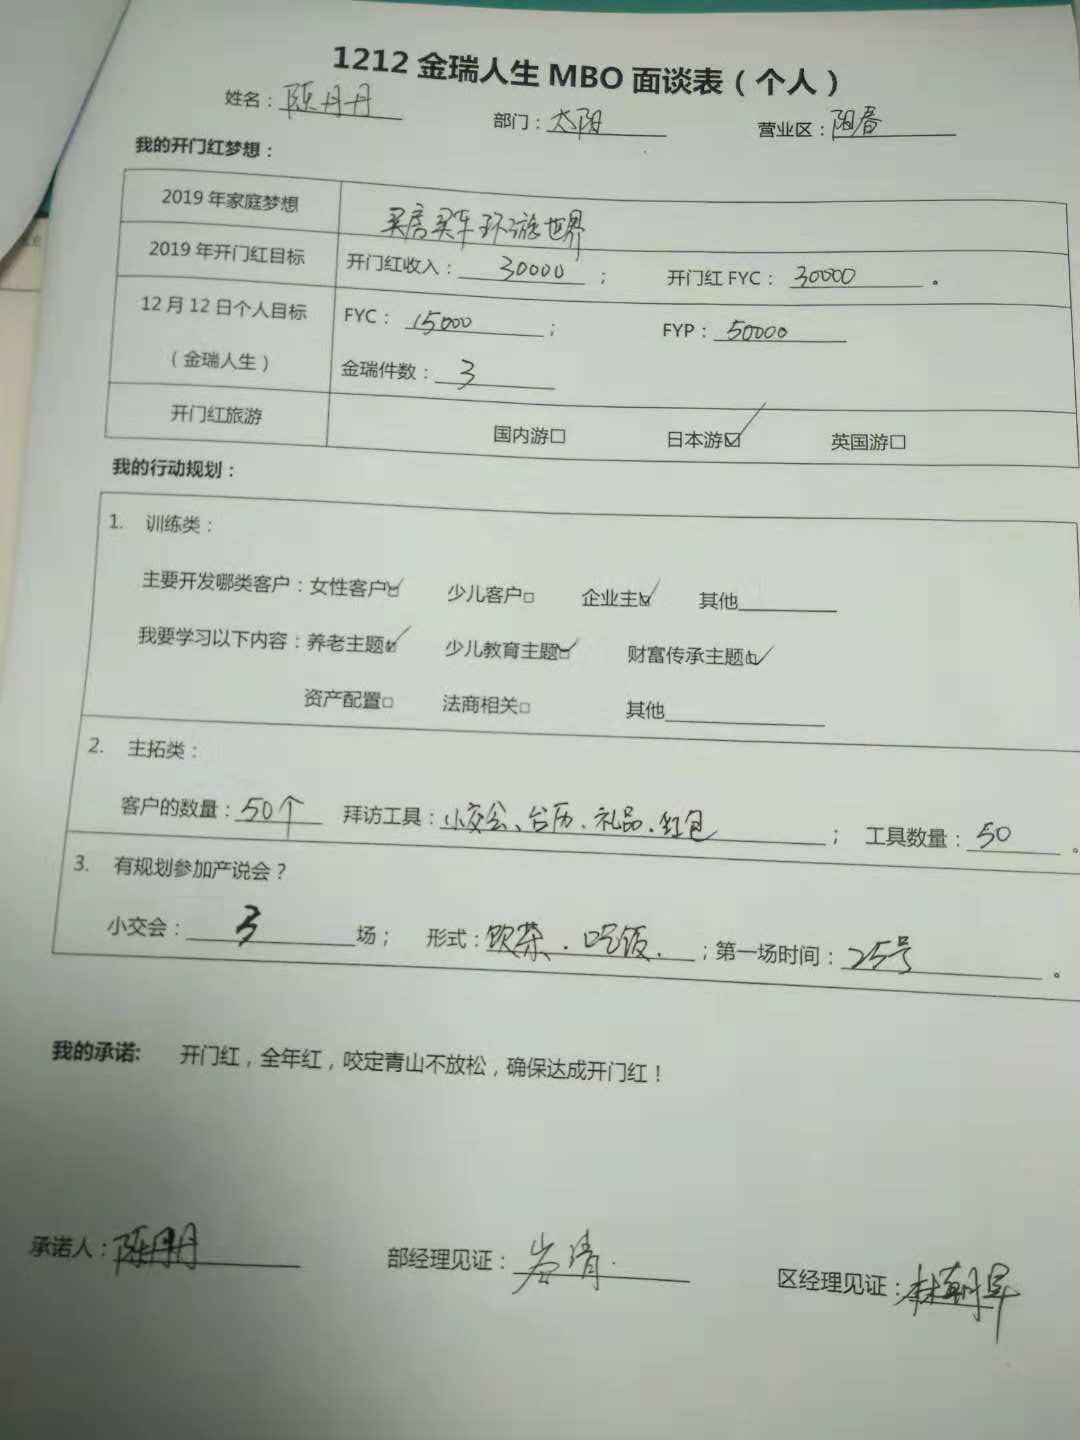 1212金瑞人生MBO面谈表（个人）
姓名：陈丹丹 部门：太阳 营业区：阳春
我的开门红梦想：
2019年家庭梦想 买房买车环游世界
2019年开门红目标 开门红收入：30000； 开门红FYC：30000。
12月12日个人目标 FYC：15000； FYP：50000
（金瑞人生） 金瑞件数：3
开门红旅游 国内游□ 日本游☑ 英国游□
我的行动规划：
1. 训练类：
主要开发哪类客户：女性客户☑ 少儿客户□ 企业主☑ 其他
我要学习以下内容：养老主题☑ 少儿教育主题☑ 财富传承主题☑
资产配置□ 法商相关□ 其他
2. 主拓类：
客户的数量：50个 拜访工具：小交会、台历、礼品、红包； 工具数量：50。
3. 有规划参加产说会？
小交会：3场； 形式：饮茶、吃饭.；第一场时间：25号。
我的承诺: 开门红，全年红，咬定青山不放松，确保达成开门红！
承诺人：陈丹丹 部经理见证： 区经理见证：